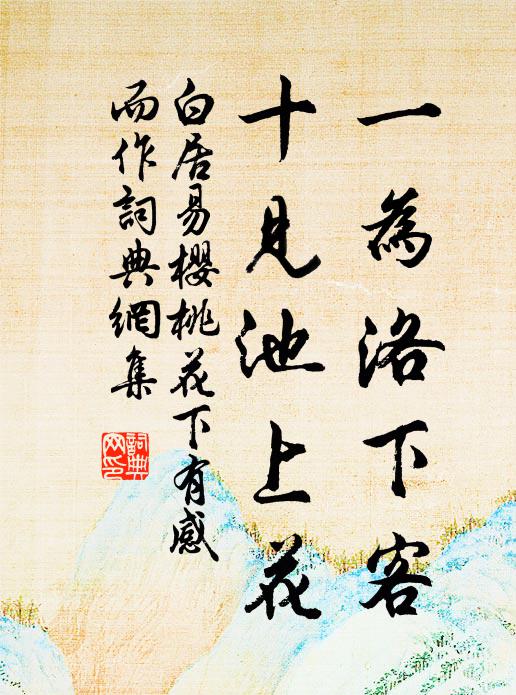 一為洛下客
十見池上花
白居易櫻桃花下有感
而作詞典網集
詞典
网印